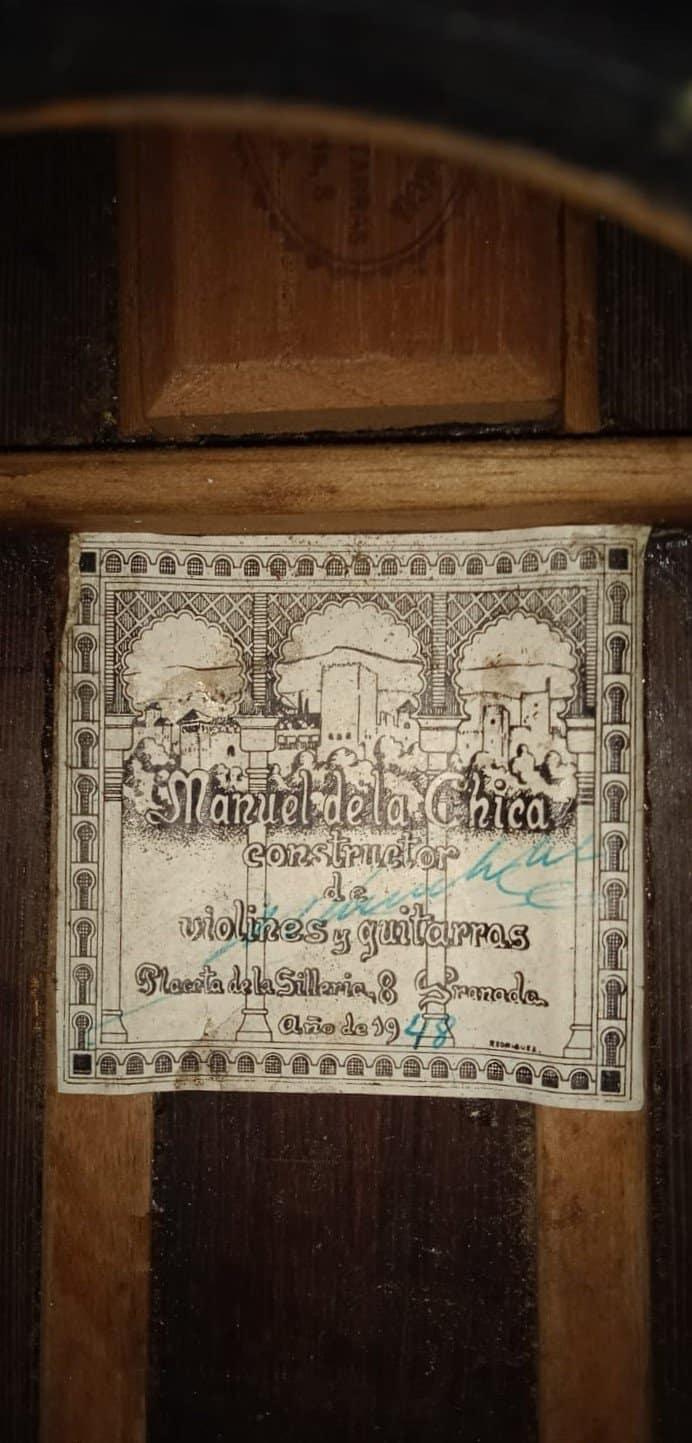 Manuel de la Chica
constructor
de
violines y guitarras
Placeta de la Silleria, 8 Granada
Año de 1948
RODRIGUEZ.